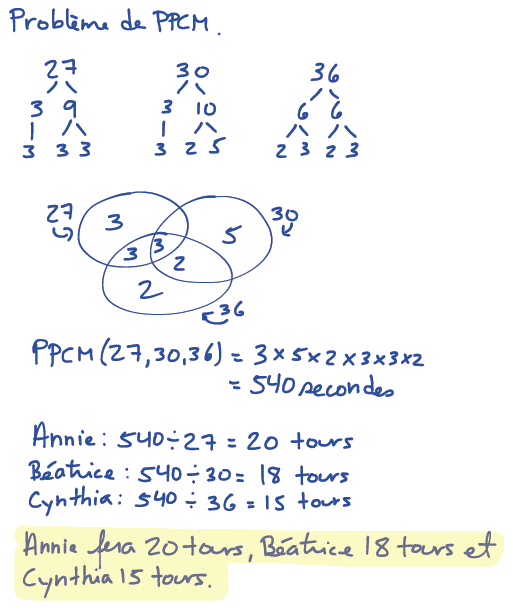 Problème de PPCM.
27 30 36
3 9 3 10 6 6
3 3 3 3 2 5 2 3 2 3
27 3 5 30
3 3 2
2 36
PPCM(27,30,36) = 3×5×2×3×3×2
= 540 secondes
Annie: 540÷27 = 20 tours
Béatrice: 540÷30 = 18 tours
Cynthia: 540 ÷ 36 = 15 tours
Annie fera 20 tours, Béatrice 18 tours et
Cynthia 15 tours.